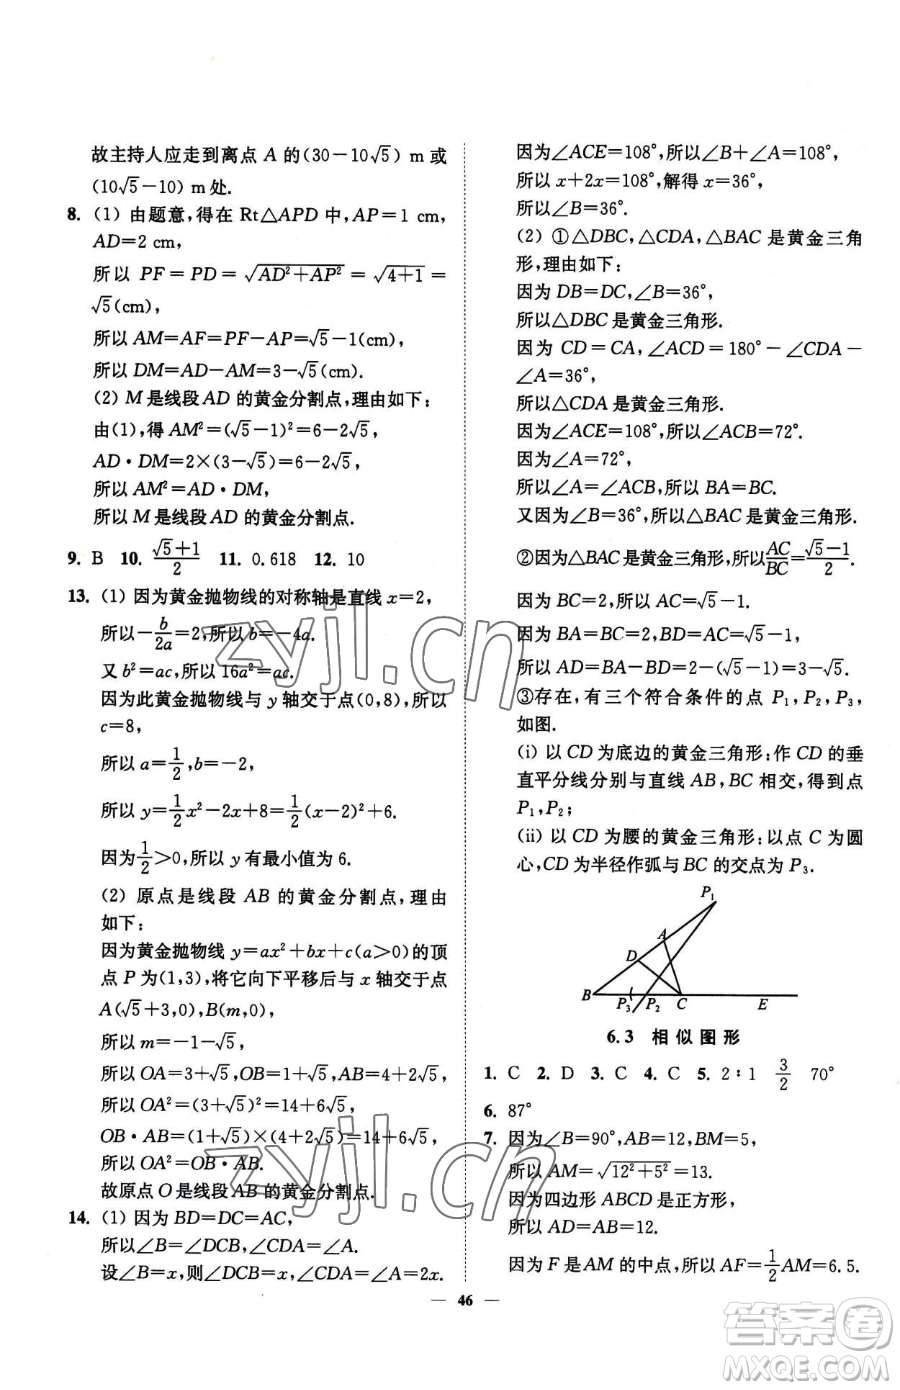 故主持人应走到离点 A 的(30-10√5) m 或
(10√5-10) m处.
8. (1) 由题意,得在 Rt△APD 中,AP=1 cm,
AD=2 cm,
所以 PF=PD=√(AD²+AP²)=√(4+1)=
√5(cm),
所以 AM=AF=PF-AP=√5-1(cm),
所以 DM=AD-AM=3-√5(cm).
(2) M 是线段 AD 的黄金分割点,理由如下:
由(1),得 AM²=(√5-1)²=6-2√5,
AD·DM=2×(3-√5)=6-2√5,
所以 AM²=AD·DM,
所以 M 是线段 AD 的黄金分割点.
9. B 10. (√5+1)/2 11. 0.618 12. 10
13. (1) 因为黄金抛物线的对称轴是直线 x=2,
所以-b/2a=2,所以 b=-4a.
又 b²=ac,所以 16a²=ac.
因为此黄金抛物线与 y 轴交于点(0,8),所以
c=8,
所以 a=1/2,b=-2,
所以 y=1/2x²-2x+8=1/2(x-2)²+6.
因为1/2>0,所以 y 有最小值为 6.
(2) 原点是线段 AB 的黄金分割点,理由
如下:
因为黄金抛物线 y=ax²+bx+c(a>0)的顶
点 P 为(1,3),将它向下平移后与 x 轴交于点
A(√5+3,0),B(m,0),
所以 m=-1-√5,
所以 OA=3+√5,OB=1+√5,AB=4+2√5,
所以 OA²=(3+√5)²=14+6√5,
OB·AB=(1+√5)×(4+2√5)=14+6√5,
所以 OA²=OB·AB.
故原点 O 是线段 AB 的黄金分割点.
14. (1) 因为 BD=DC=AC,
所以∠B=∠DCB,∠CDA=∠A.
设∠B=x,则∠DCB=x,∠CDA=∠A=2x.
因为∠ACE=108°,所以∠B+∠A=108°,
所以 x+2x=108°,解得 x=36°,
所以∠B=36°.
(2) ①△DBC,△CDA,△BAC 是黄金三角
形,理由如下:
因为 DB=DC,∠B=36°,
所以△DBC 是黄金三角形.
因为 CD=CA,∠ACD=180°-∠CDA-
∠A=36°,
所以△CDA 是黄金三角形.
因为∠ACE=108°,所以∠ACB=72°.
因为∠A=72°,
所以∠A=∠ACB,所以 BA=BC.
又因为∠B=36°,所以△BAC 是黄金三角形.
②因为△BAC 是黄金三角形,所以AC/BC=(√5-1)/2.
因为 BC=2,所以 AC=√5-1.
因为 BA=BC=2,BD=AC=√5-1,
所以 AD=BA-BD=2-(√5-1)=3-√5.
③存在,有三个符合条件的点 P₁,P₂,P₃,
如图.
(i) 以 CD 为底边的黄金三角形:作 CD 的垂
直平分线分别与直线 AB,BC 相交,得到点
P₁,P₂;
(ii) 以 CD 为腰的黄金三角形:以点 C 为圆
心,CD 为半径作弧与 BC 的交点为 P₃.
P₁
A
D
B P₃ P₂ C E
6.3 相似图形
1. C 2. D 3. C 4. C 5. 2∶1 3/2 70°
6. 87°
7. 因为∠B=90°,AB=12,BM=5,
所以 AM=√(12²+5²)=13.
因为四边形 ABCD 是正方形,
所以 AD=AB=12.
因为 F 是 AM 的中点,所以 AF=1/2AM=6.5.
— 46 —
zyjl.cn
zyjl.cn
答案圈
MXQE.COM